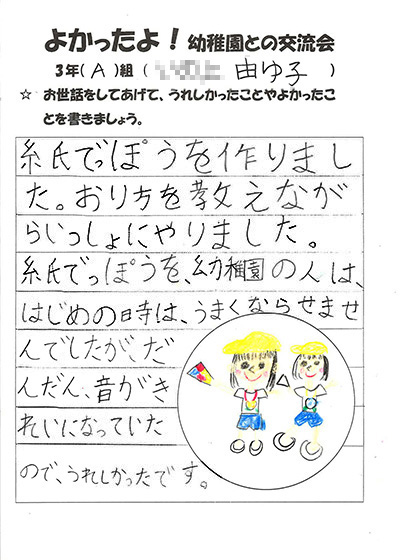 よかったよ！幼稚園との交流会
3年(A)組( 由ゆ子 )
☆ お世話をしてあげて、うれしかったことやよかったこ
とを書きましょう。
紙でっぽうを作りまし
た。おり方を教えなが
らいっしょにやりました。
紙でっぽうを、幼稚園の人は、
はじめの時は、うまくならせませ
んでしたが、だ
んだん、音がき
れいになっていた
ので、うれしかったです。